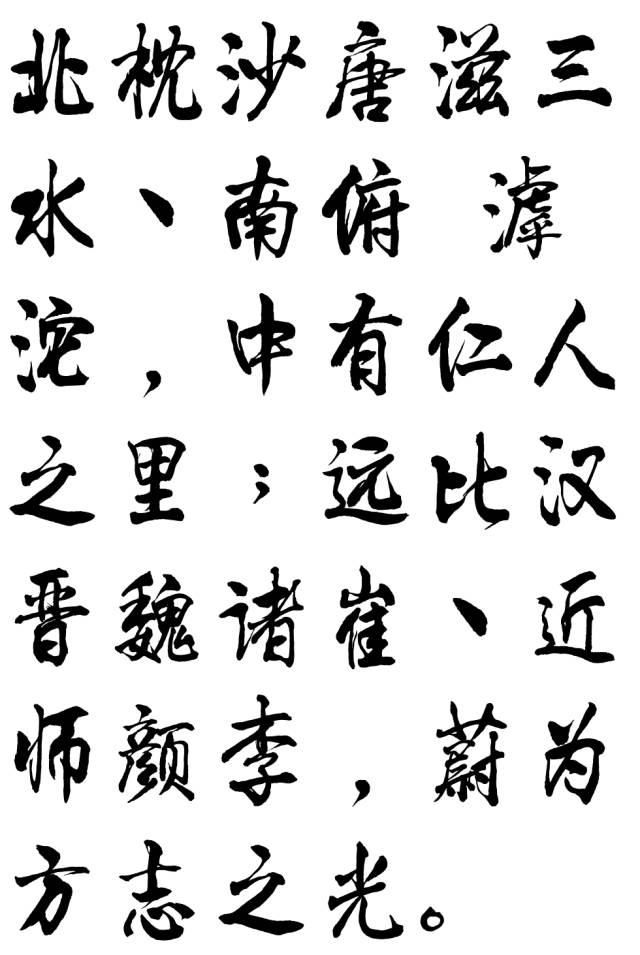 北枕沙唐滋三
水、南俯 滹
沱，中有仁人
之里；远比汉
晋魏诸崔、近
师颜李，蔚为
方志之光。